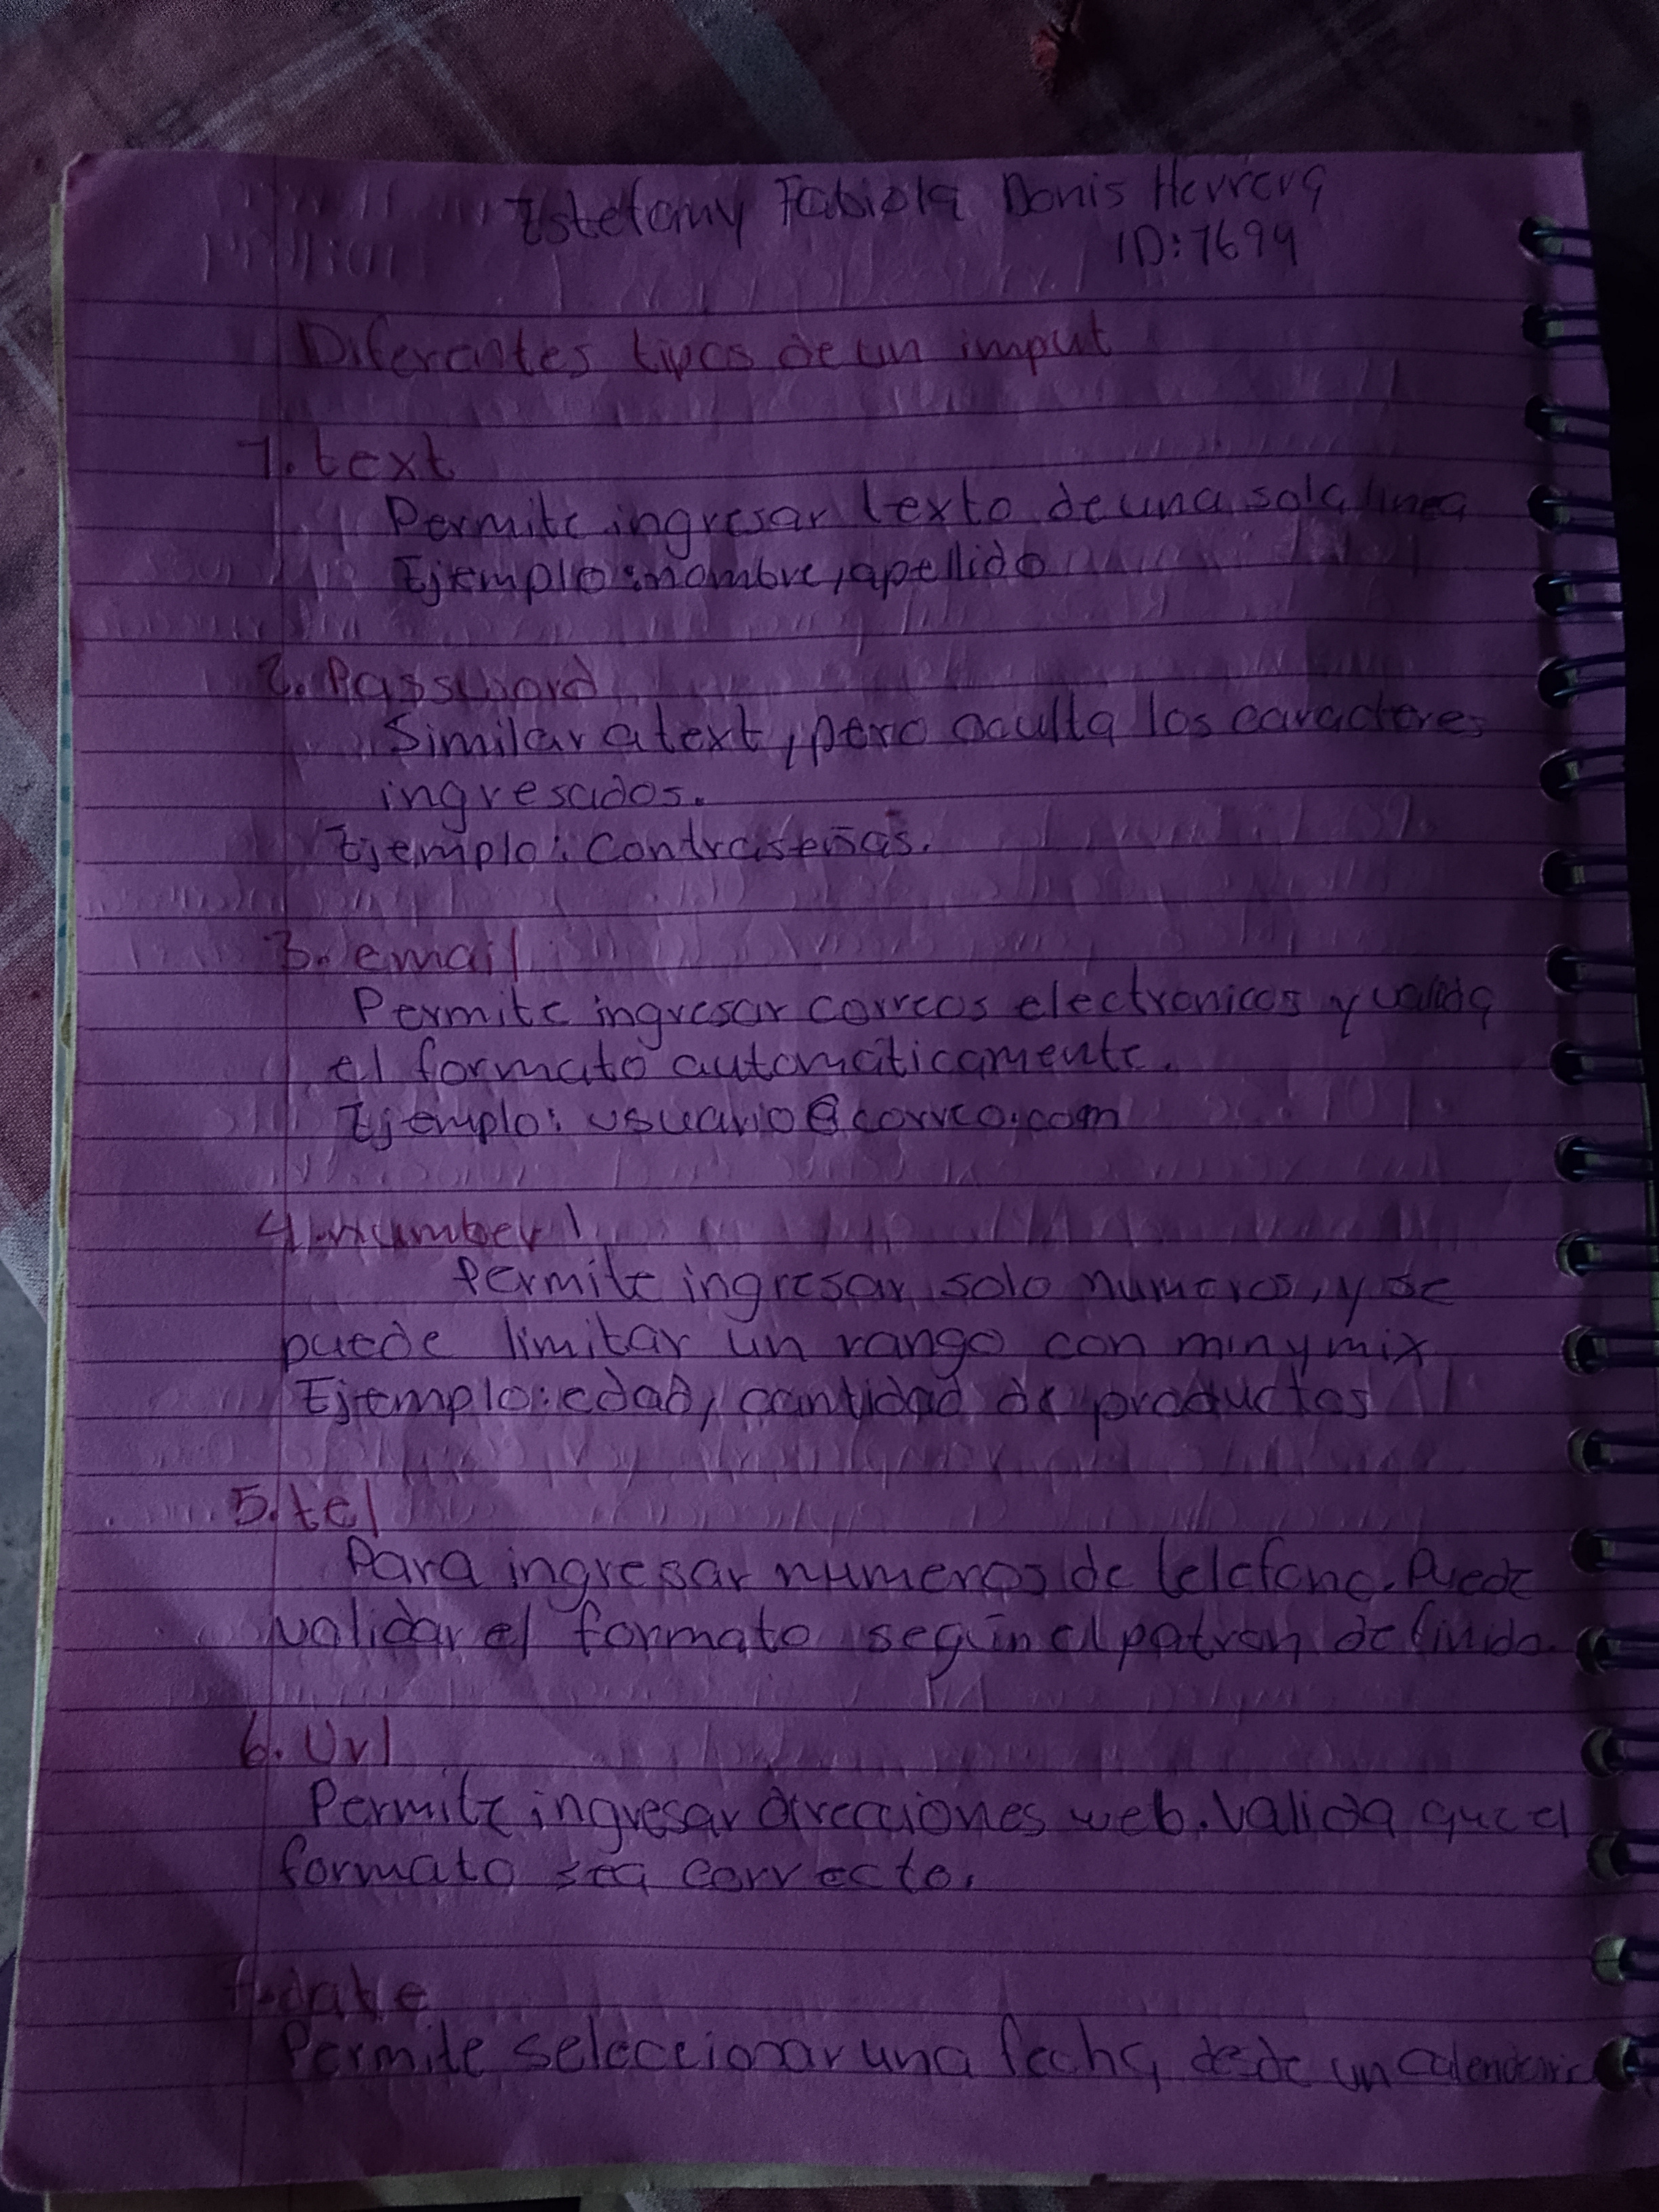 Estefany Fabiola Donis Herrera
ID:7699
Diferentes tipos de un imput
1. text
Permite ingresar texto de una sola linea
Ejemplo: nombre, apellido
2. Password
Similar a text, pero oculta los caracteres
ingresados.
Ejemplo: Contraseñas.
3. email
Permite ingresar correos electronicos y valida
el formato automáticamente.
Ejemplo: usuario@correo.com
4. number
Permite ingresar solo numeros, y se
puede limitar un rango con min y mix
Ejemplo: edad, cantidad de productos
5. tel
Para ingresar numeros de telefono. Puede
validar el formato según el patron definido.
6. Url
Permite ingresar direcciones web. Valida que el
formato sea correcto.
7. date
Permite seleccionar una fecha desde un calendario